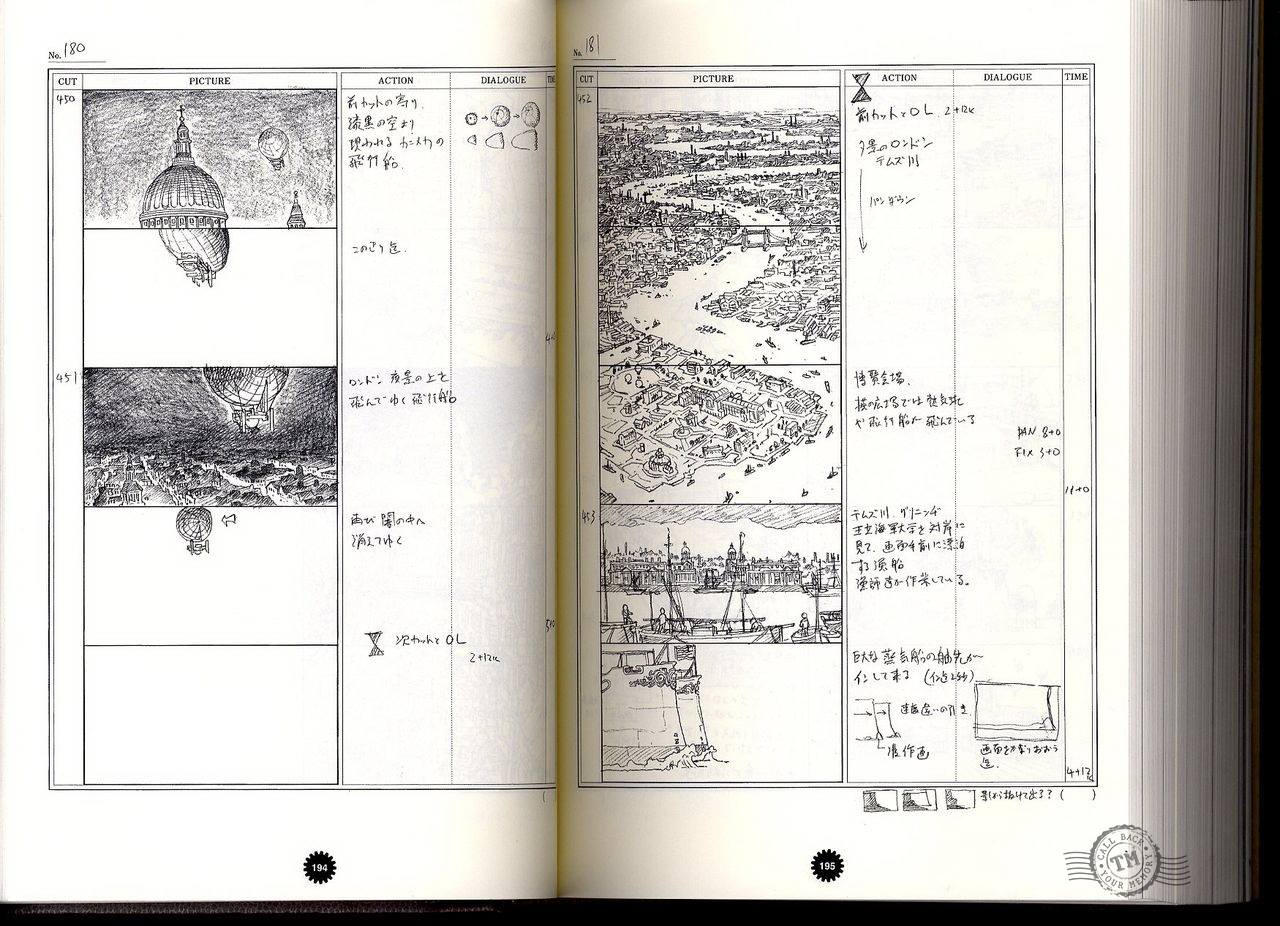 No. 180
CUT PICTURE ACTION DIALOGUE
450
前カットの寄り.
漆黒の空より
現われる
飛行船.
451
ロンドン 夜景の上を
飛んでゆく 飛行船
再び 闇の中へ
消えてゆく
次カットと OL
2+12K
194
No. 181
CUT PICTURE ACTION DIALOGUE TIME
452
前カットと OL. 2+12K
夕景のロンドン
テムズ川
パンダウン
博覧会場.
横の広場では 熱気球
や 飛行船が 飛んでいる
PAN 8+0
FIX 3+0
11+0
453
テムズ川 グリニッヂ
王立海軍大学を対岸に
見て. 画面手前に漂泊
する漁船
漁師達が作業している。
巨大な 蒸気船の舳先が
インして来る
速度違いの引き
波作画
画面をかなりおおう
迄.
4+12K
195
CALL BACK
TM
YOUR MEMORY